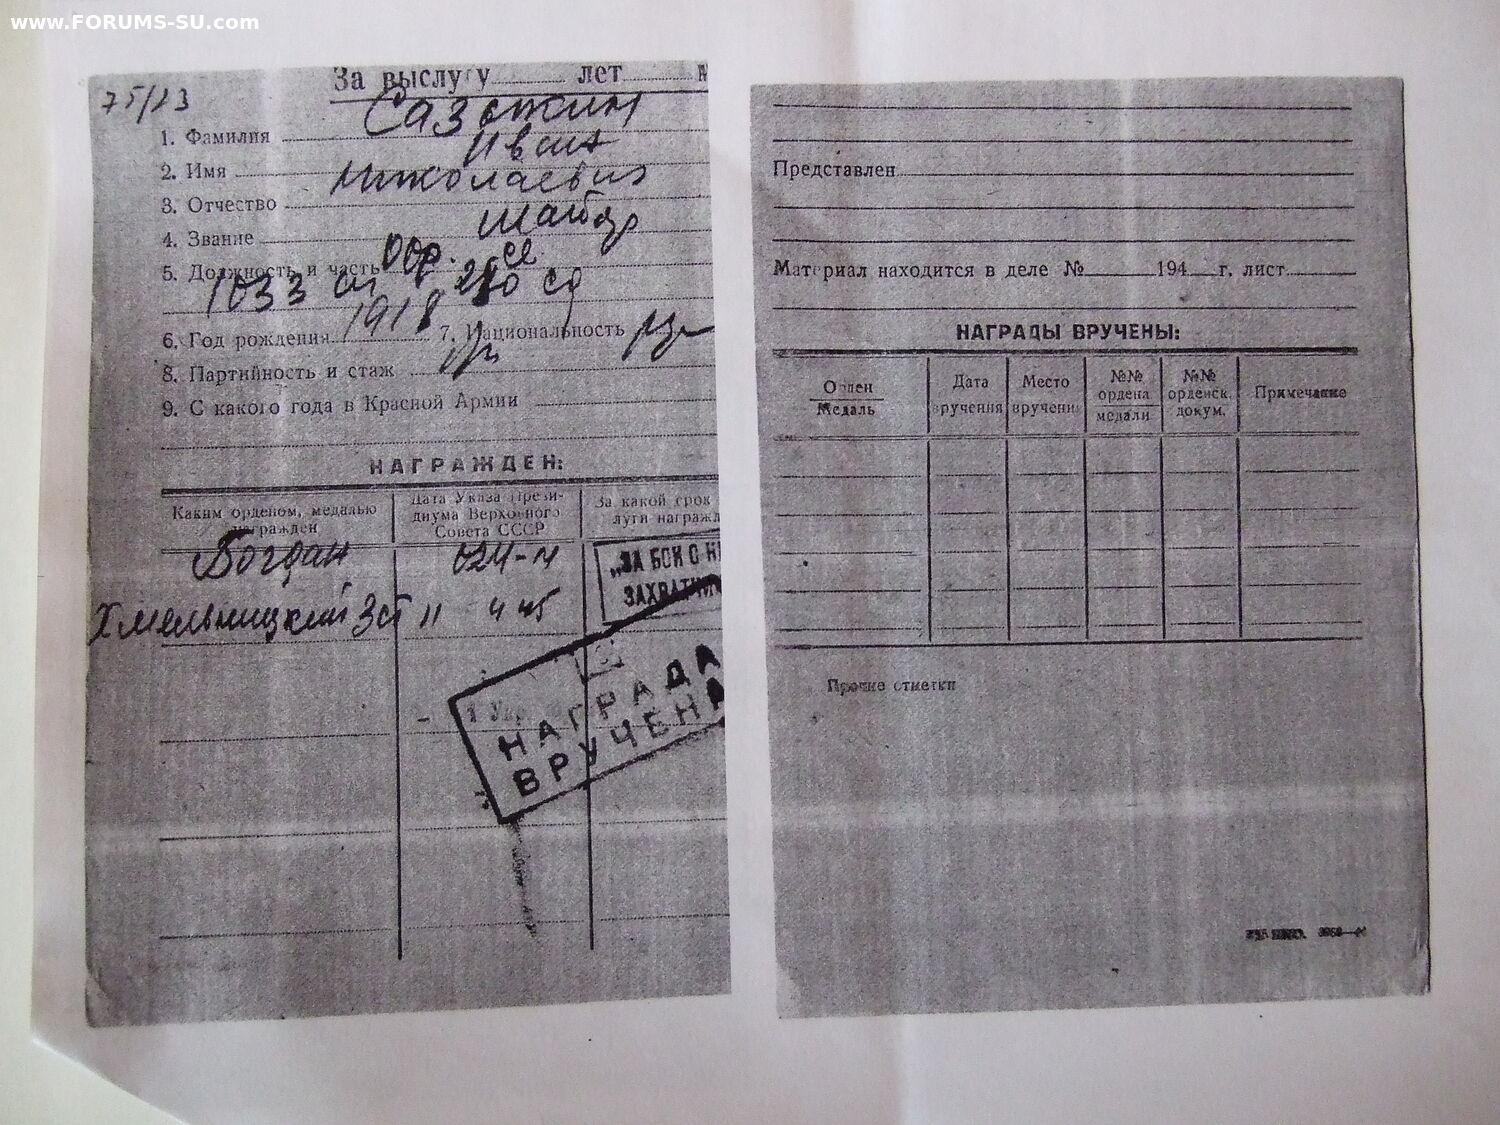 www.FORUMS-SU.com
75/23
За выслугу лет
1. Фамилия Сазыкин
2. Имя Иван
3. Отчество Николаевич
4. Звание
5. Должность и часть
1033 280 сд
6. Год рождения 1918 7. Национальность
8. Партийность и стаж
9. С какого года в Красной Армии
НАГРАЖДЕН:
Каким орденом, медалью награжден
Дата Указа Президиума Верховного Совета СССР
За какой срок
луги награжд
Богдан 024-н
Хмельницкий 3 ст 11 4 45
„ЗА БОИ О Н
ЗАХВАТЧИ
НАГРАДА
ВРУЧЕНА
Представлен
Материал находится в деле № 194 г. лист
НАГРАДЫ ВРУЧЕНЫ:
Орден
Медаль
Дата вручения
Место вручения
№№ ордена медали
№№ орденск. докум.
Примечание
Прочие отметки